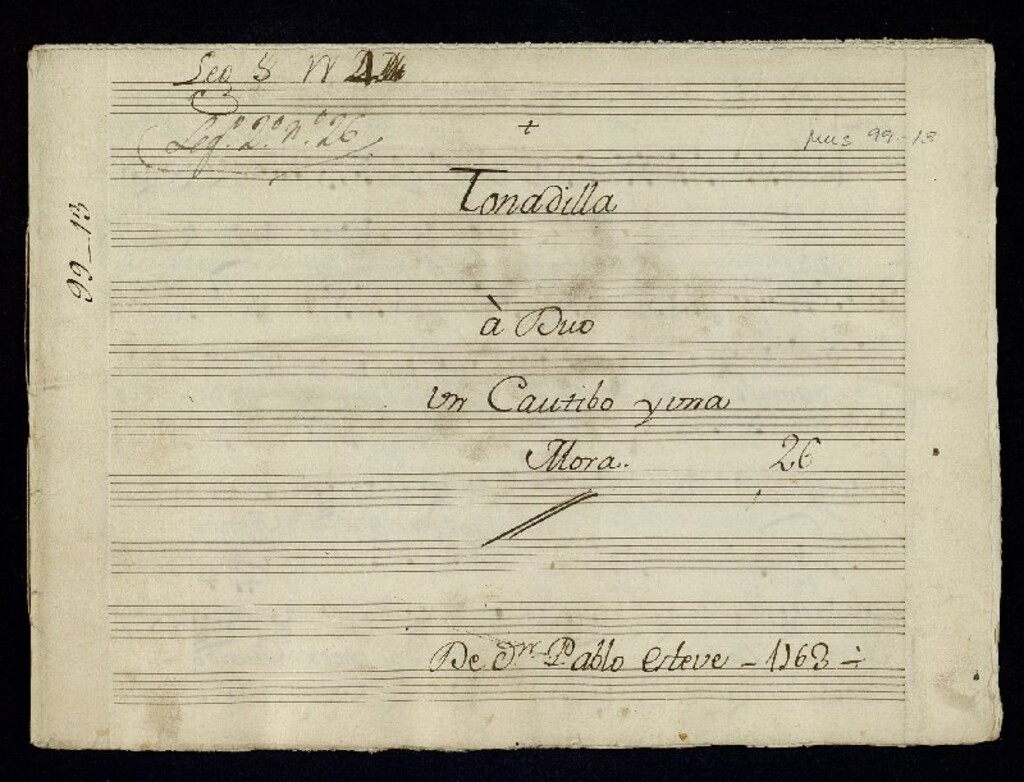 Leg 3 N
Leg.º 2.º n.º 26
+
Mus 99-13
99-13
Tonadilla
à Duo
Un Cautibo y una
Mora. 26
De Dn. Pablo Esteve - 1763 -